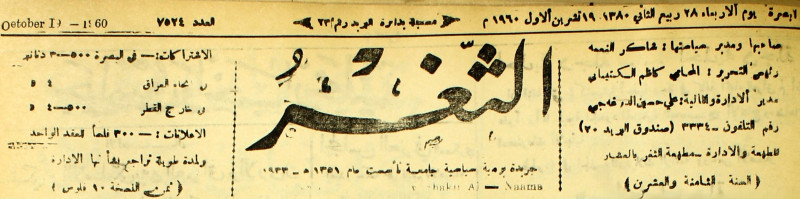 البصرة يوم الاربعاء ٢٨ ربيع الثاني ١٣٨٠ ١٩ تشرين الاول ١٩٦٠ م
مصبية بدائرة البريد رقم ٢٣
العدد ٧٥٢٤
October 19 - 1960
صاحبها ومدير سياستها: شاكر النعمه
رئيس التحرير: المحامي كاظم
مدير الادارة والمالية: علي حسين
رقم التلفون - ٣٣٣٤ (صندوق البريد ٢٠)
المطبعة والادارة - مطبعة الثغر بالعشار
(السنة الثامنة والعشرين)
الثَّغْرُ
جريدة يومية سياسية جامعة تأسست عام ١٣٥١ ه - ١٩٣٣
Al - Naama
الاشتراكات: - في البصرة ٥٠٠-٣ دنانير
في انحاء العراق ٤ »
في خارج القطر ٥٠٠-٤ »
الاعلانات: - ٣٠٠ فلساً للعقد الواحد
ولمدة طويلة تراجع بشأنها الادارة
(ثمن النسخة ١٠ فلوس)